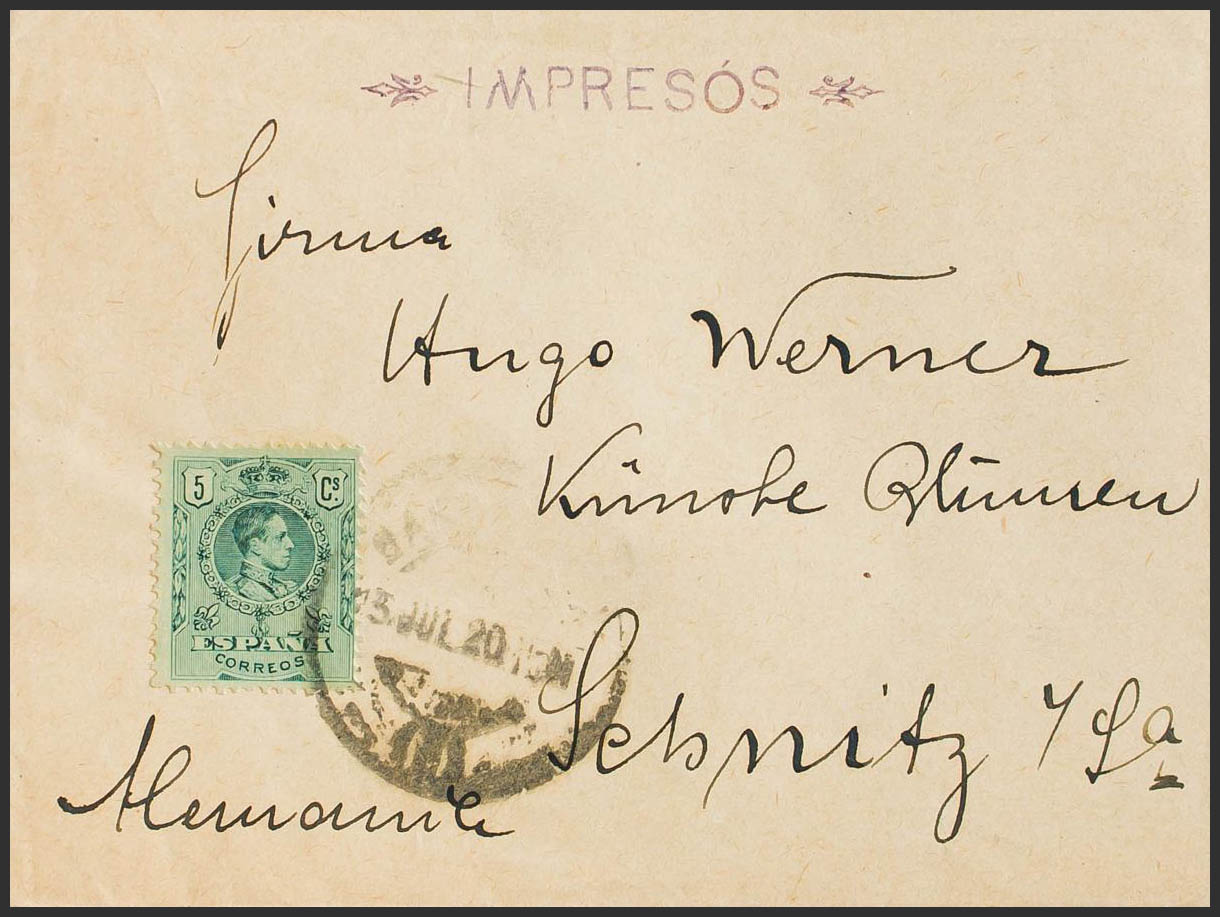 IMPRESÓS
Firma
Hugo Werner
Künstle Blumen
5 Cs.
ESPAÑA
CORREOS
JUL 20
Sebnitz 1/Sa
Alemania